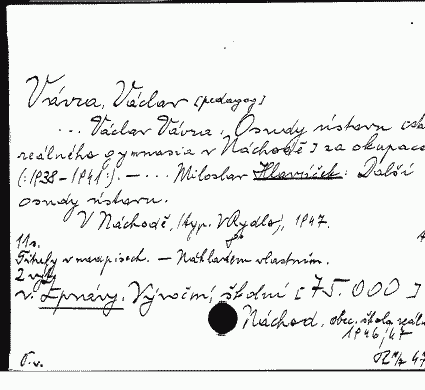 Vávra, Václav [pedagog]
... Václav Vávra: Osudy ústavu [stát.
reálného gymnasia v Náchodě] za okupace
(:1938-1941:). - ... Miloslav Hlaváček: Další
osudy ústavu.
V Náchodě, (typ. V Rydlo), 1947.
11 s.
Titely v nadpisech. - Nákladem vlastním.
2 výt.
v. Zprávy. Výroční, školní [75.000]
Náchod, obec. škola reál.
1946/47
47
O.v.